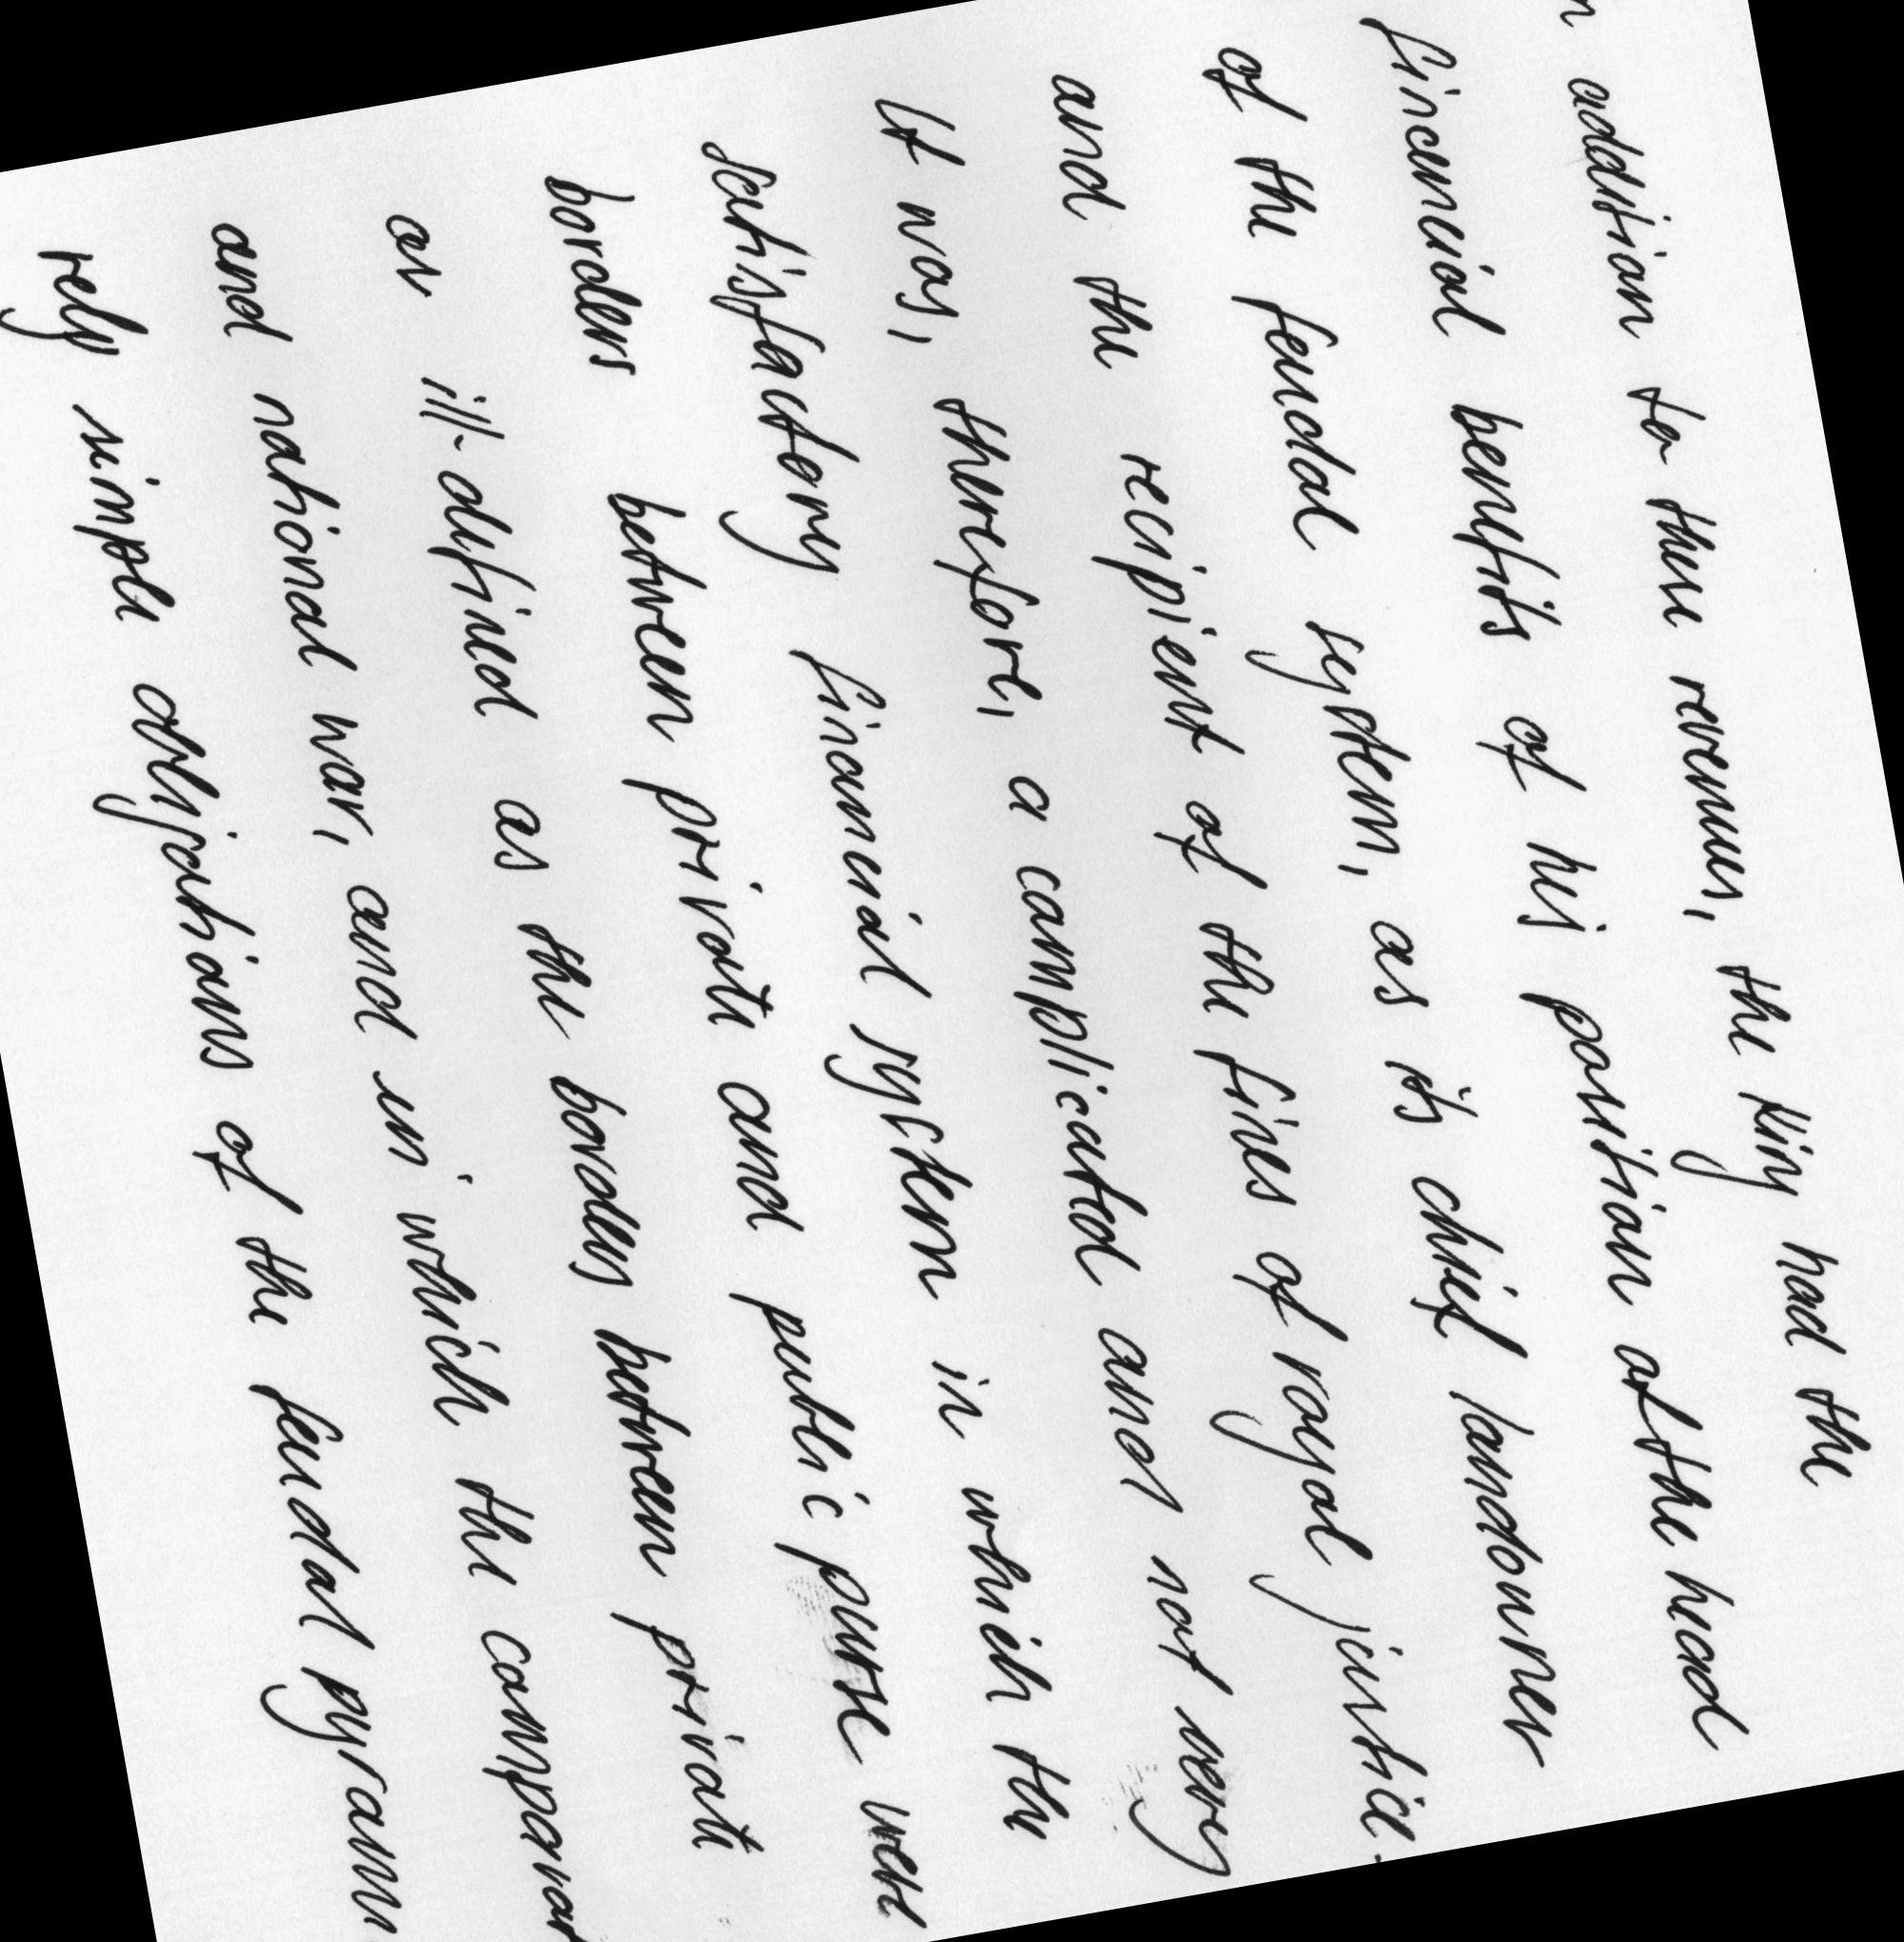 addition to these revenues, the King had the
financial benefits of his position at the head
of the feudal system, as its chief landowner
and the recipient of the fines of royal justice.
It was, therefore, a complicated and not very
satisfactory financial system in which the
borders between private and public purse were
as ill-defined as the borders between private
and national war, and in which the comparat
rely simple obligations of the feudal pyram